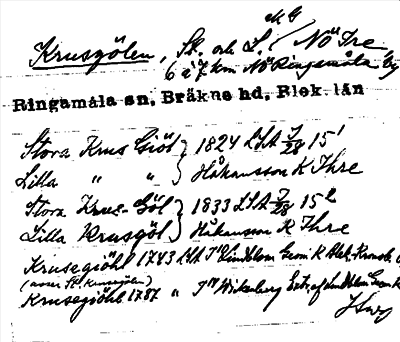 Krusgölen, St. och L. NÖ Ire
6 à 7 km NÖ Ringamåla by
Ringamåla sn, Bräkne hd, Blek. län
Stora Krus Giöl } 1824 LSA J/28 15¹
Lilla " " } Håkansson K Ihre
Stora Krus-Göl } 1833 LSA J/28 15²
Lilla Krusgöl } Håkansson K Ihre
Krusegiöhl 1743 LSA Lindblom Geom K
(avser St. Krusgölen)
Krusegiöhl 1787 " Wikenberg Extr. af Lindblom Geom K